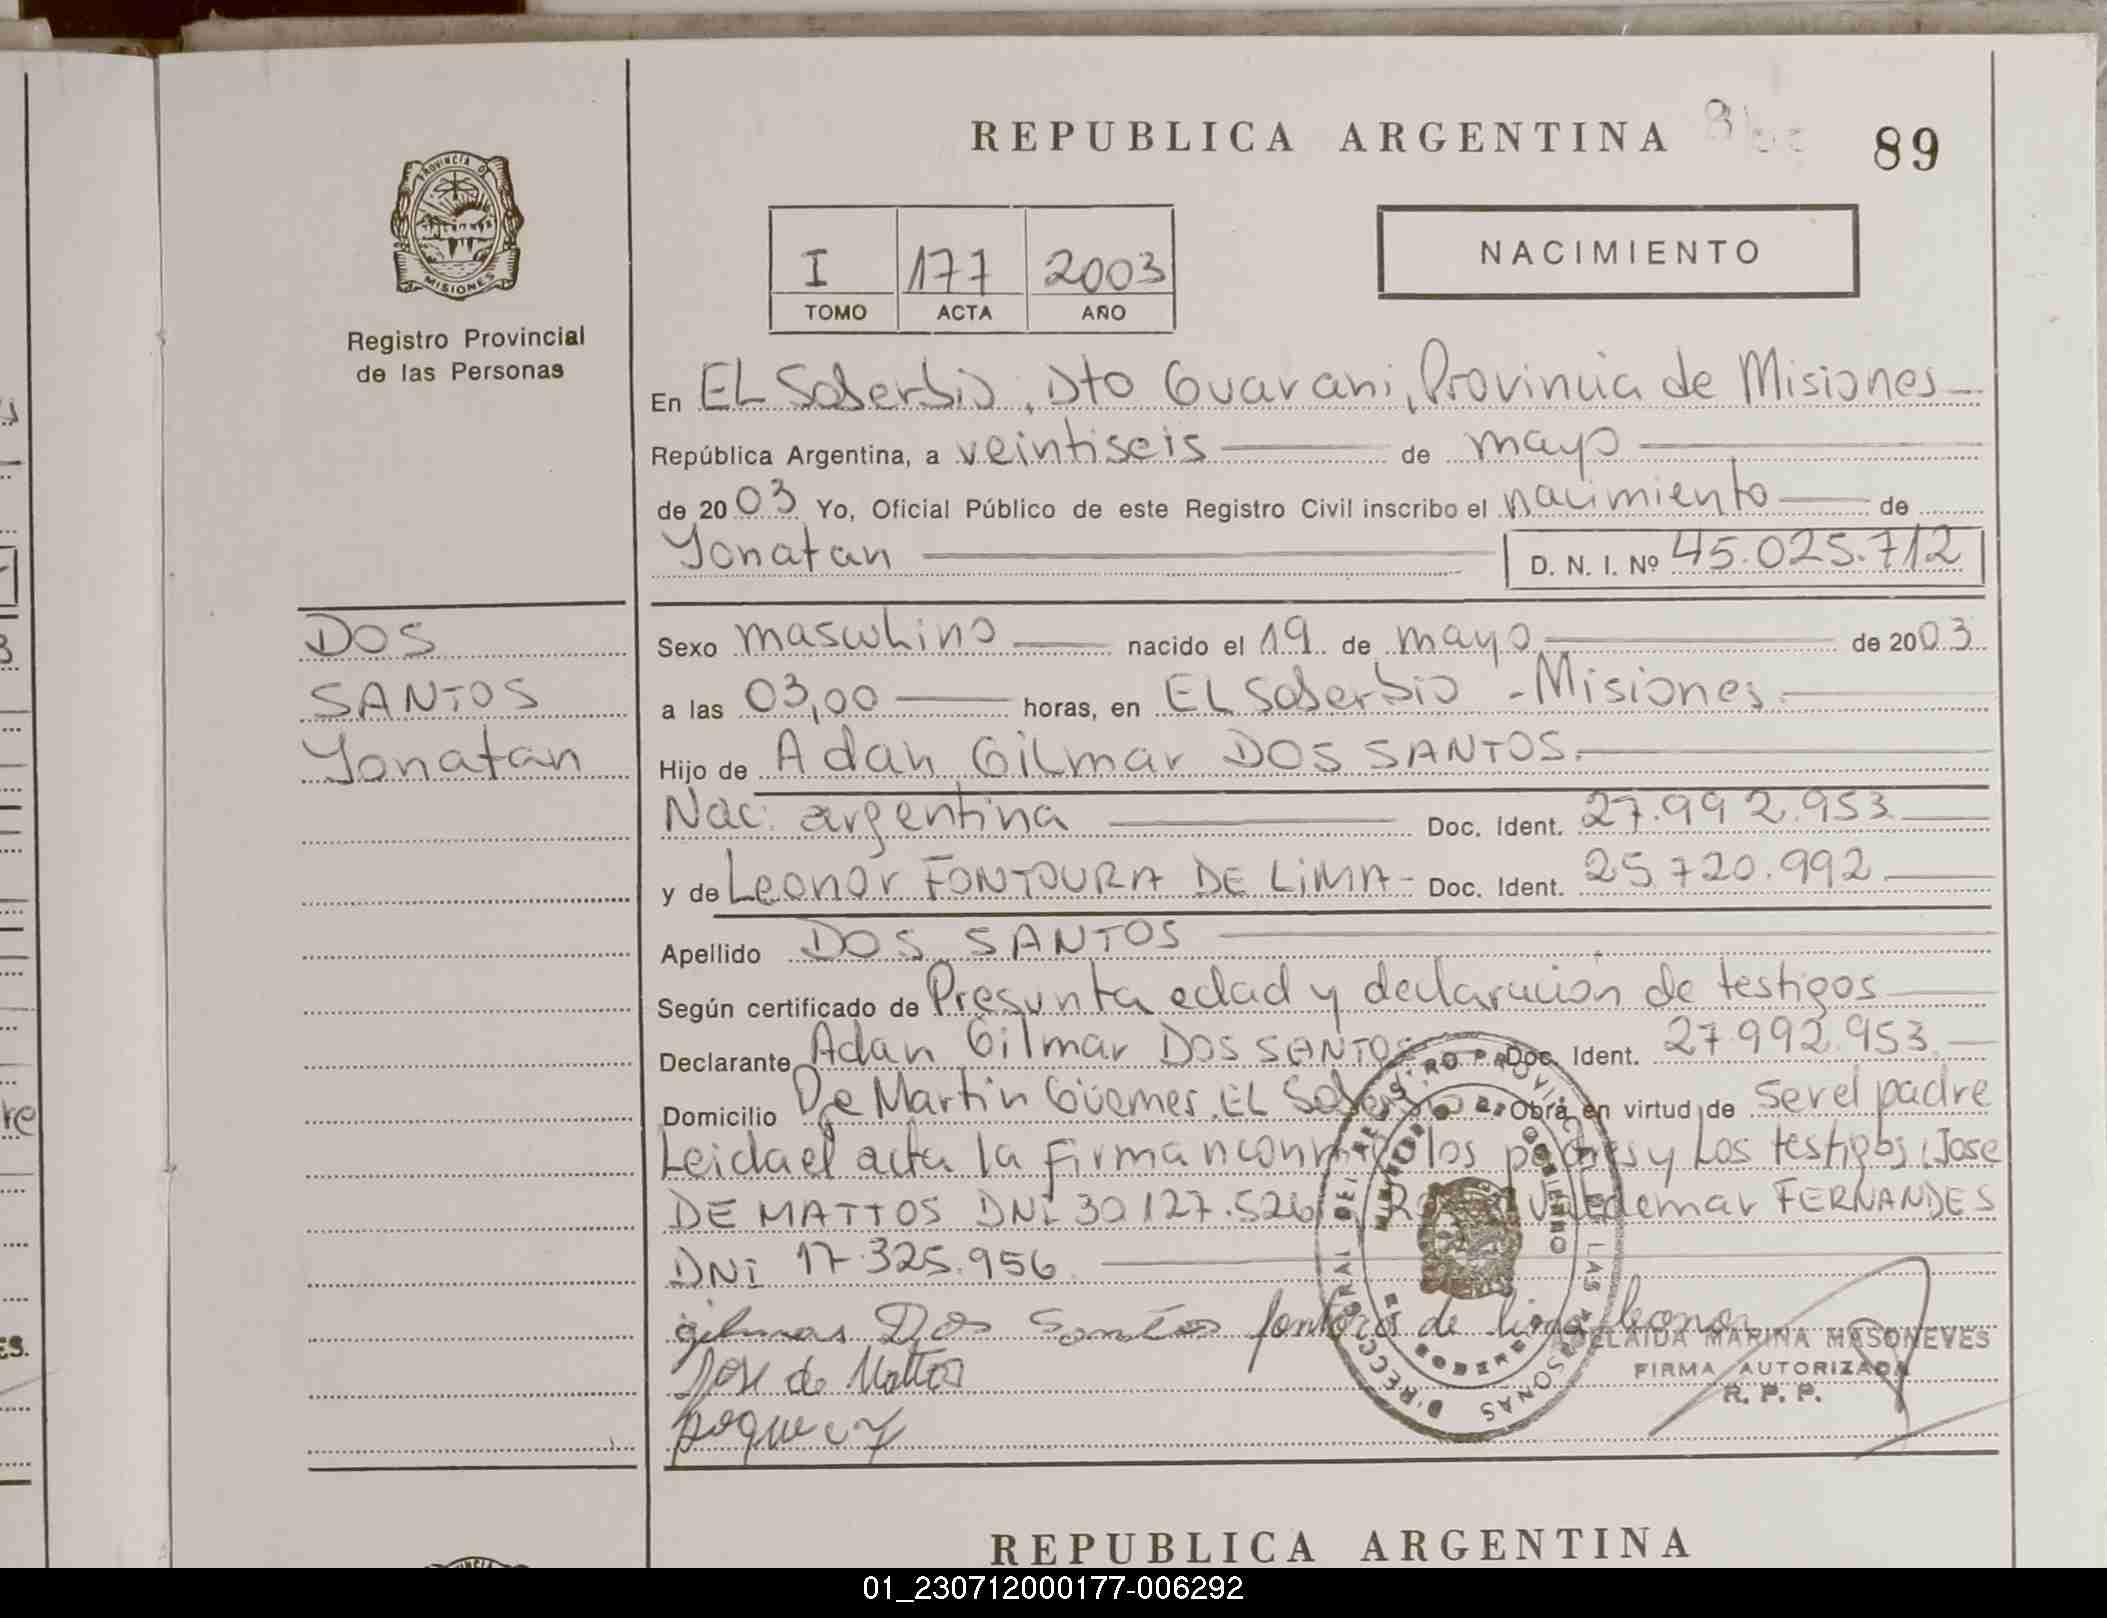 REPUBLICA ARGENTINA
89
I 177 2003
TOMO ACTA AÑO
NACIMIENTO
PROVINCIA DE
MISIONES
Registro Provincial
de las Personas
En EL Soberbio, Dto Guarani, Provincia de Misiones
República Argentina, a veintiseis de mayo
de 2003 Yo, Oficial Público de este Registro Civil inscribo el nacimiento de
Yonatan D. N. I. Nº 45.025.712
DOS
SANTOS
Yonatan
Sexo masculino nacido el 19 de mayo de 2003
a las 03,00 horas, en EL Soberbio - Misiones
Hijo de Adan Gilmar DOS SANTOS.
Nac. argentina Doc. Ident. 27.992.953
y de Leonor FONTOURA DE LiMA- Doc. Ident. 25.720.992
Apellido DOS SANTOS
Según certificado de Presunta edad y declaracion de testigos
Declarante Adan Gilmar DOS SANTOS Doc. Ident. 27.992.953
Domicilio De Martin Güemes, EL Soberbio Obra en virtud de ser el padre
Leida el acta la firman conmigo los padres y Los testigos: Jose
DE MATTOS DNi 30.127.526 Valdemar FERNANDES
DNi 17.325.956
gilmar Dos Santos fontora de lima leonor
ADELAIDA MARINA MASONEVES
Jose de Mattos
FIRMA AUTORIZADA
R. P. P.
REPUBLICA ARGENTINA
01_230712000177-006292